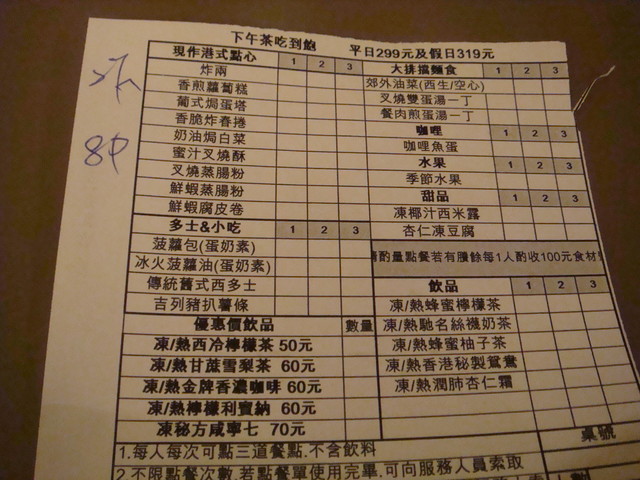 下午茶吃到飽 平日299元及假日319元
現作港式點心 1 2 3
炸兩
香煎蘿蔔糕
葡式焗蛋塔
香脆炸春捲
奶油焗白菜
蜜汁叉燒酥
叉燒蒸腸粉
鮮蝦蒸腸粉
鮮蝦腐皮卷
多士&小吃 1 2 3
菠蘿包(蛋奶素)
冰火菠蘿油(蛋奶素)
傳統舊式西多士
吉列豬扒薯條
優惠價飲品 數量
凍/熱西冷檸檬茶 50元
凍/熱甘蔗雪梨茶 60元
凍/熱金牌香濃咖啡 60元
凍/熱檸檬利賓納 60元
凍秘方咸寧七 70元
大排擋麵食 1 2 3
郊外油菜(西生/空心)
叉燒雙蛋湯一丁
餐肉煎蛋湯一丁
咖哩 1 2 3
咖哩魚蛋
水果 1 2 3
季節水果
甜品 1 2 3
凍椰汁西米露
杏仁凍豆腐
酌量點餐若有賸餘每1人酌收100元食材
飲品 1 2 3
凍/熱蜂蜜檸檬茶
凍/熱馳名絲襪奶茶
凍/熱蜂蜜柚子茶
凍/熱香港秘製鴛鴦
凍/熱潤肺杏仁霜
桌號
1.每人每次可點三道餐點.不含飲料
2.不限點餐次數.若點餐單使用完畢.可向服務人員索取